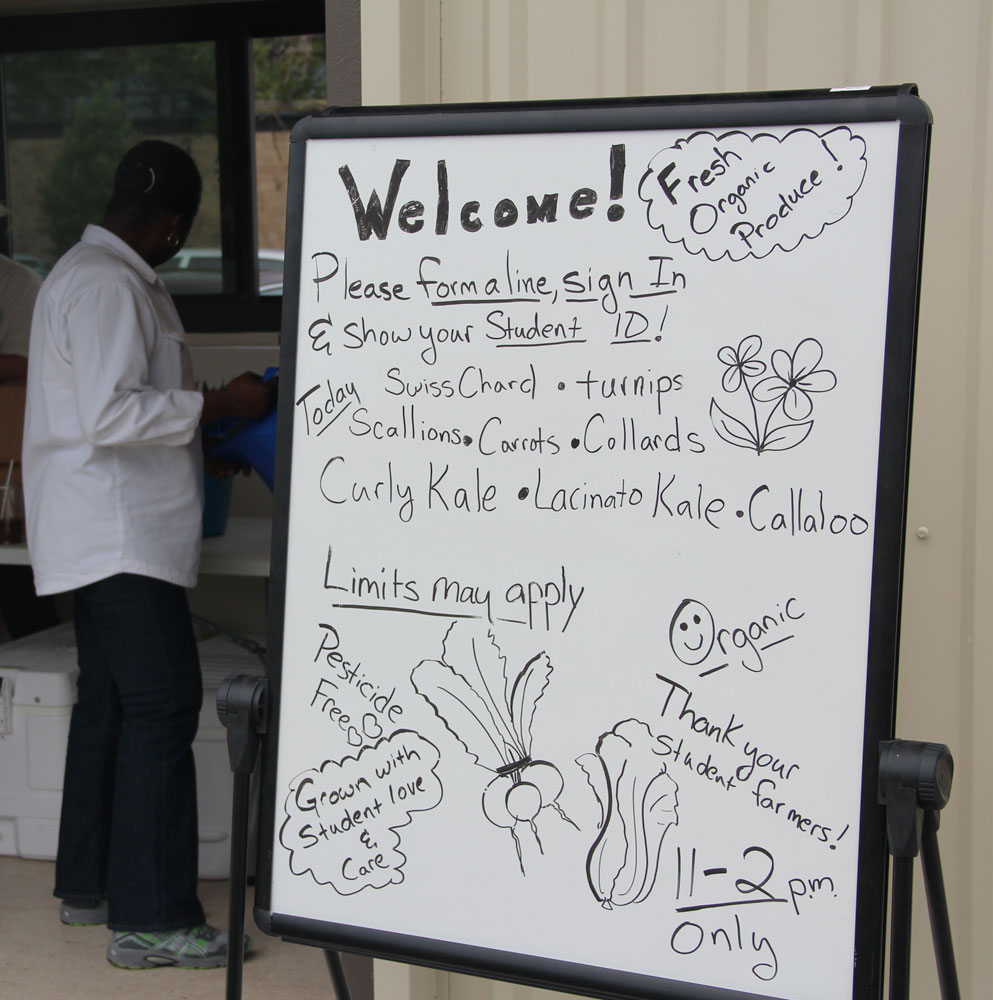 Welcome!
Fresh
Organic
Produce!
Please form a line, sign In
& Show your Student ID!
Today Swiss Chard • turnips
Scallions • Carrots • Collards
Curly Kale • Lacinato Kale • Callaloo
Limits may apply
Organic
Pesticide
Free
Thank your
Student farmers!
Grown with
Student love
&
Care
11-2 p.m.
Only